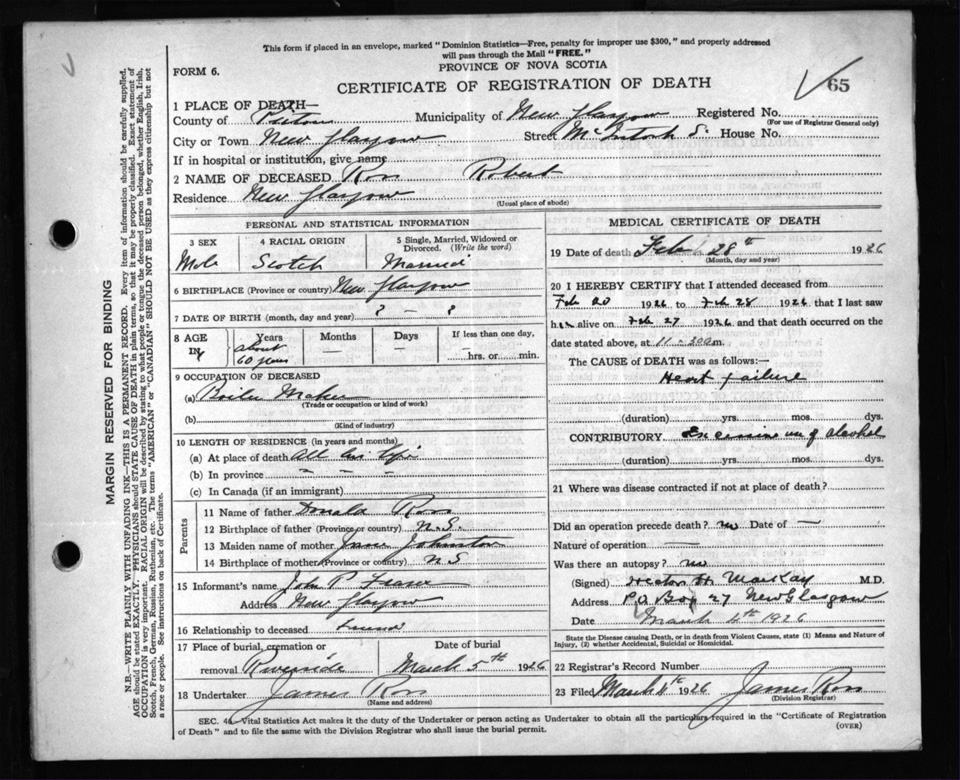 This form if placed in an envelope, marked "Dominion Statistics—Free, penalty for improper use $300," and properly addressed
will pass through the Mail "FREE."
PROVINCE OF NOVA SCOTIA
FORM 6.
CERTIFICATE OF REGISTRATION OF DEATH
65
1 PLACE OF DEATH—
County of Pictou Municipality of New Glasgow Registered No.
(For use of Registrar General only)
City or Town New Glasgow Street McIntosh S. House No.
If in hospital or institution, give name
2 NAME OF DECEASED Ross Robert
Residence New Glasgow
(Usual place of abode)
PERSONAL AND STATISTICAL INFORMATION
3 SEX 4 RACIAL ORIGIN 5 Single, Married, Widowed or
Divorced. (Write the word)
Male Scotch Married
6 BIRTHPLACE (Province or country) New Glasgow
7 DATE OF BIRTH (month, day and year) ? — ?
8 AGE Years Months Days If less than one day,
IN about — — —
60 years hrs. or min.
9 OCCUPATION OF DECEASED
(a) Boiler Maker
(Trade or occupation or kind of work)
(b)
(Kind of industry)
10 LENGTH OF RESIDENCE (in years and months)
(a) At place of death All his life
(b) In province – – –
(c) In Canada (if an immigrant)
Parents
11 Name of father Donald Ross
12 Birthplace of father (Province or country) N.S.
13 Maiden name of mother Jane Johnston
14 Birthplace of mother (Province or country) N S
15 Informant's name John P Fraser
Address New Glasgow
16 Relationship to deceased Friend
17 Place of burial, cremation or Date of burial
removal Riverside March 5th 1926
18 Undertaker James Ross
(Name and address)
MEDICAL CERTIFICATE OF DEATH
19 Date of death Feb 28th 1926
(Month, day and year)
20 I HEREBY CERTIFY that I attended deceased from
Feb 20 1926 to Feb 28 1926 that I last saw
him alive on Feb 27 1926 and that death occurred on the
date stated above, at 11-30 a m.
The CAUSE of DEATH was as follows:—
Heart failure
(duration) yrs. mos. dys.
CONTRIBUTORY Excessive use of alcohol
(duration) yrs. mos. dys.
21 Where was disease contracted if not at place of death?
Did an operation precede death? no Date of —
Nature of operation —
Was there an autopsy? no
(Signed) Hector H MacKay M.D.
Address P.O. Box 27 New Glasgow
Date March 4th 1926
State the Disease causing Death, or in death from Violent Causes, state (1) Means and Nature of
Injury, (2) whether Accidental, Suicidal or Homicidal.
22 Registrar's Record Number
23 Filed March 4th 1926 James Ross
(Division Registrar)
SEC. 4 Vital Statistics Act makes it the duty of the Undertaker or person acting as Undertaker to obtain all the particulars required in the "Certificate of Registration
of Death" and to file the same with the Division Registrar who shall issue the burial permit.
(OVER)
MARGIN RESERVED FOR BINDING
N.B.—WRITE PLAINLY WITH UNFADING INK—THIS IS A PERMANENT RECORD. Every item of information should be carefully supplied.
AGE should be stated EXACTLY. PHYSICIANS should STATE CAUSE OF DEATH in plain terms, so that it may be properly classified. Exact statement of
OCCUPATION is very important. RACIAL ORIGIN will be described by stating to what people or tongue the deceased person belonged, whether English, Irish,
Scotch, French, German, Russian, Ruthenian, etc. The terms "AMERICAN" or "CANADIAN" SHOULD NOT BE USED as they express citizenship but not
a race or people. See instructions on back of Certificate.